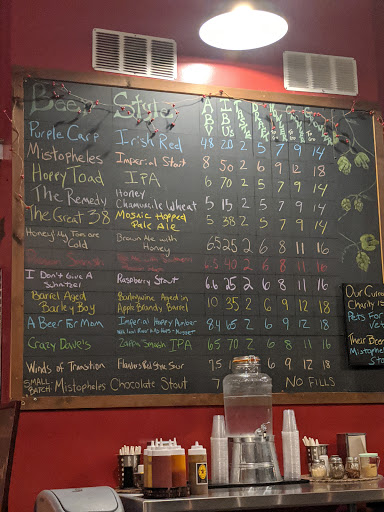 Beer Style ABV IBUs
Purple Carp Irish Red 48 20 2 5 7 9 14
Mistopheles Imperial Stout 8 50 2 6 9 12 18
Hoppy Toad IPA 6 70 2 5 7 9 14
The Remedy Honey Chamomile Wheat 5 15 2 5 7 9 14
The Great 38 Mosaic Hopped Pale Ale 5 38 2 5 7 9 14
Honey! My Toes are Cold Brown Ale with Honey 6.5 25 2 6 8 11 16
6.5 40 2 6 8 11 16
I Don't Give A Schnitzel Raspberry Stout 6.6 25 2 6 8 11 16
Barrel Aged Barley Boy Barleywine Aged in Apple Brandy Barrel 10 35 2 6 9 12 18
A Beer For Mom Imperial Honey Amber 84 65 2 6 9 12 18
Crazy Dave's Zappa Smash IPA 65 70 2 6 8 11 16
Winds of Transition Flanders Red Style Sour 6 9 12 18
SMALL BATCH Mistopheles Chocolate Stout 7 NO FILLS
Charity
Pets For
Their Beer
Mistophe